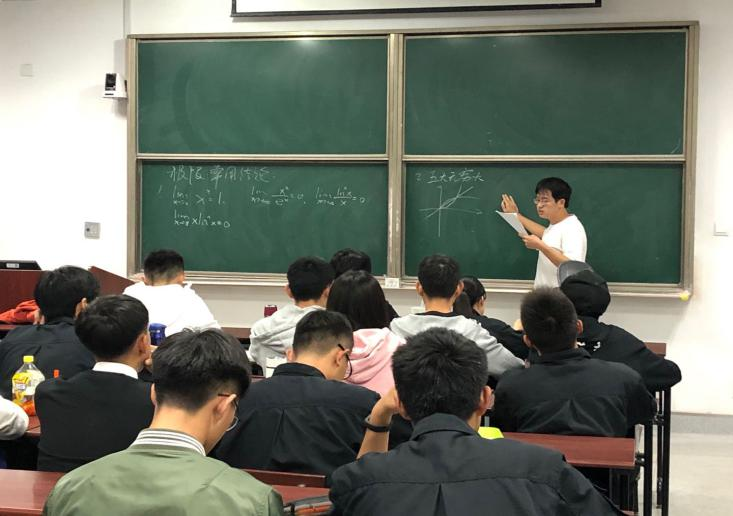 极限常用结论
1. lim x→0⁺ xˣ = 1, lim x→+∞ xⁿ/eˣ = 0, lim x→+∞ lnⁿx/x = 0
lim x→0⁺ x lnⁿx = 0
2. 五大无穷大